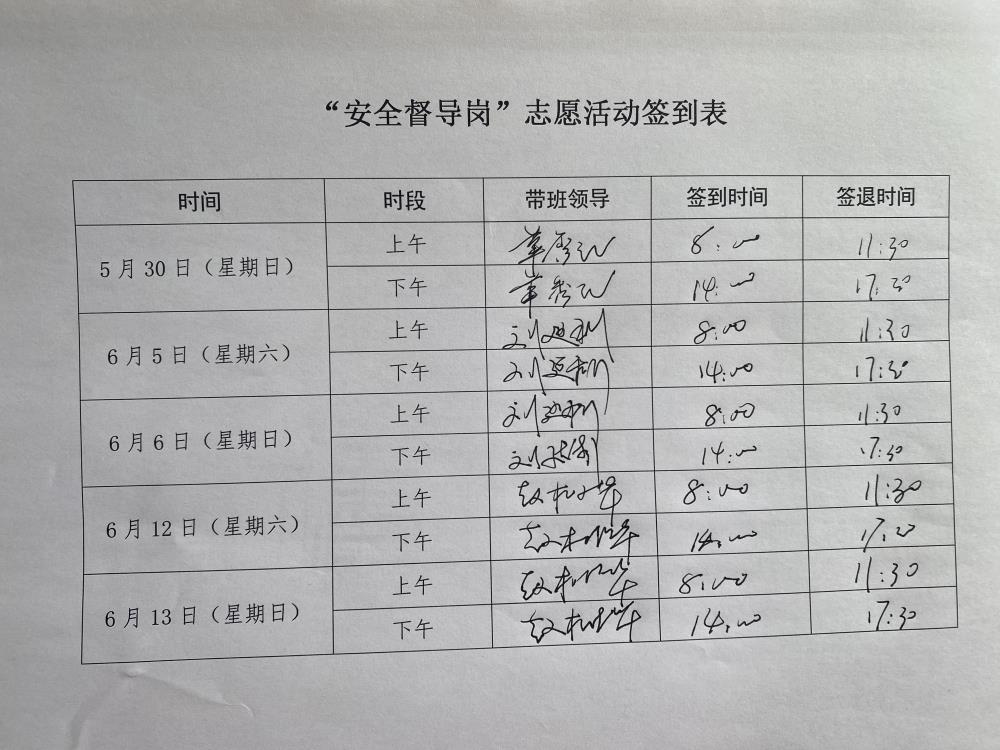 “安全督导岗”志愿活动签到表
时间 时段 带班领导 签到时间 签退时间
5月30日（星期日） 上午 8:00 11:30
下午 14:00 17:30
6月5日（星期六） 上午 刘 8:00 11:30
下午 刘 14:00 17:30
6月6日（星期日） 上午 刘 8:00 11:30
下午 刘 14:00 17:30
6月12日（星期六） 上午 赵 8:00 11:30
下午 赵 14:00 17:30
6月13日（星期日） 上午 赵 8:00 11:30
下午 赵 14:00 17:30